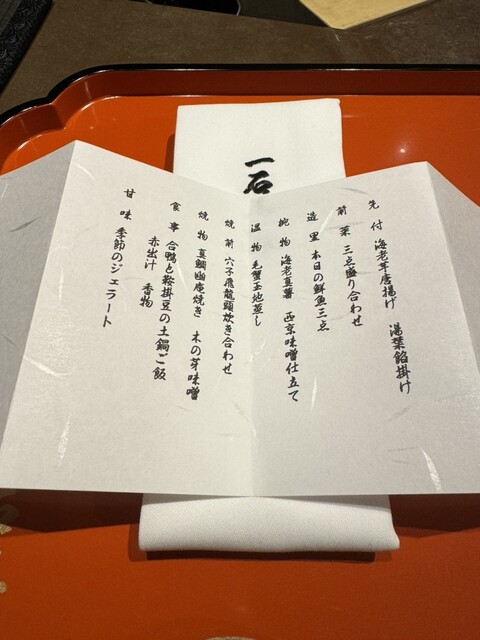 一石
先付 海老芋唐揚げ 湯葉餡掛け
前菜 三点盛り合わせ
造里 本日の鮮魚三点
椀物 海老真薯 西京味噌仕立て
温物 毛蟹玉地蒸し
焼前 穴子飛龍頭炊き合わせ
焼物 真鯛幽庵焼き 木の芽味噌
食事 合鴨と鞍掛豆の土鍋ご飯
赤出汁 香物
甘味 季節のジェラート